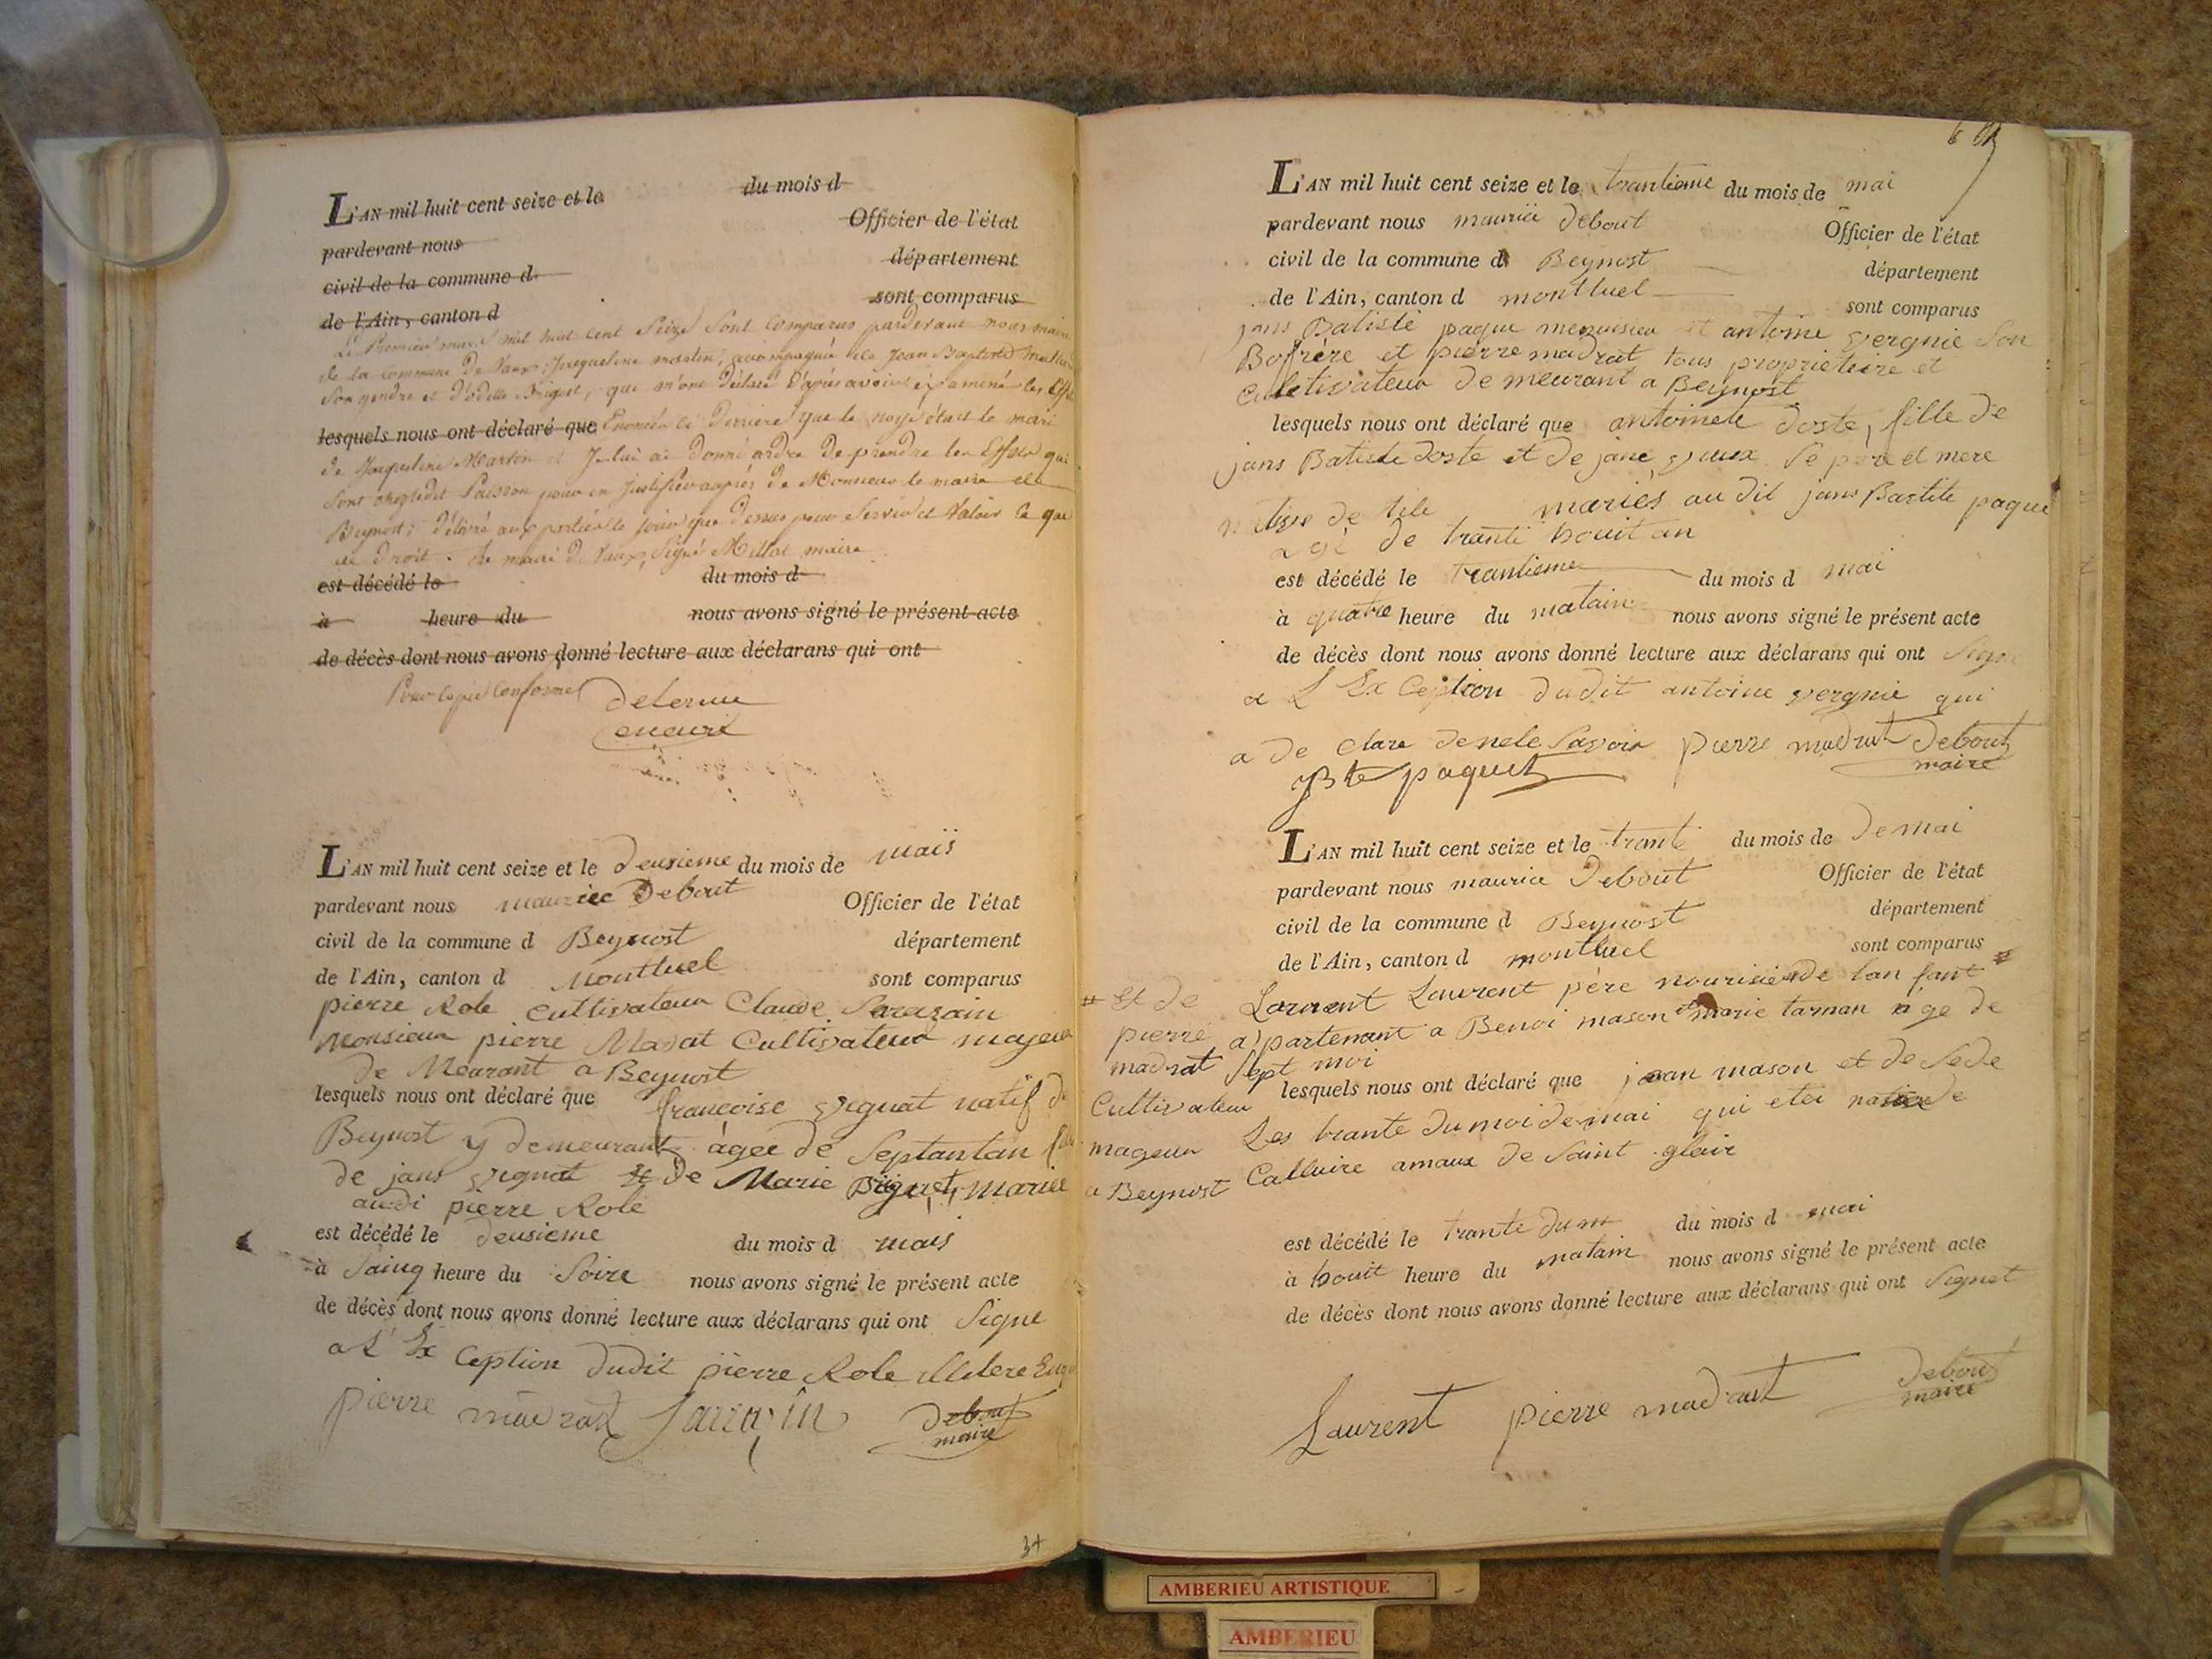 L'AN mil huit cent seize et le du mois d
pardevant nous Officier de l'état
civil de la commune d département
de l'Ain, canton d sont comparus
Le Premier mil huit cent Seize Sont Comparus pardevant nous maire
de la Commune De Vaux, Jacqueline martin, accompagnée de Jean Baptiste
Son gendre et d'odette Briguet, que m'ont Déclaré D'après avoir éxaminé les Effets
lesquels nous ont déclaré que Enoncés ci Derrière que le noyé était le mari
de Jacqueline Martin et Je lui ai Donné ordre De prendre les Effets qui
Sont pour en Justifier auprès de Monsieur le maire de
Beynost; Délivré aux parties le Jour que Dessus pour Servir et Valoir Ce que
de droit. Le maire De Vaux, Signé Millet maire
est décédé le du mois d
à heure du nous avons signé le présent acte
de décès dont nous avons donné lecture aux déclarans qui ont
Pour Copie Conforme
L'AN mil huit cent seize et le deusieme du mois de mais
pardevant nous maurice Debout Officier de l'état
civil de la commune d Beynost département
de l'Ain, canton d Montluel sont comparus
pierre Role Cultivateur Claude Sarazain
Monsieur pierre Madat Cultivateur majeur
de Meurant a Beynost
lesquels nous ont déclaré que francoise vignat natif de
Beynost y demeurant àgée de Septantan
de jans vignat et de Marie Biguet, mariée
audi pierre Role
est décédé le deusieme du mois d mais
à Sainq heure du Soire nous avons signé le présent acte
de décès dont nous avons donné lecture aux déclarans qui ont Signe
a L'Ex Ception dudit pierre Role
pierre madrat Sarrazin Debout
maire
34
L'AN mil huit cent seize et le trantieme du mois de mai
pardevant nous maurice Debout Officier de l'état
civil de la commune d Beynost département
de l'Ain, canton d montluel sont comparus
jans Batiste paque menuisieu et antoine vergnie Son
Bofrère et pierre madrat tous proprieteire et
Culetivateur De meurant a Beynost
lesquels nous ont déclaré que antoinete Doste, fille de
jans Batiste Doste et De jane vieux Se père et mere
native de tile mariés au dit jans Bastite paque
agé de tranti houit an
est décédé le trantieme du mois d mai
à quatre heure du matain nous avons signé le présent acte
de décès dont nous avons donné lecture aux déclarans qui ont Signe
a L Ex Ception dudit antoine vergnie qui
a De Clare Denele Savoir pierre madrat Debout
maire
JBte paquet
L'AN mil huit cent seize et le trante du mois de De mai
pardevant nous maurice Debout Officier de l'état
civil de la commune d Beynost département
de l'Ain, canton d montluel sont comparus
Laurent Laurent père nourisié de lan fant #
apartenant a Benoi mason et marie tarnan age de
Sept moi
# Et de
pierre
madrat
Cultivateur
mageur
a Beynost
lesquels nous ont déclaré que jean mason et de Sede
Les trante du moi de mai qui etei de
Calluire amaux de Saint glair
est décédé le trante du m du mois d mai
à houit heure du matain nous avons signé le présent acte
de décès dont nous avons donné lecture aux déclarans qui ont Signet
Laurent pierre madrat Debout
maire
AMBERIEU ARTISTIQUE
AMBERIEU